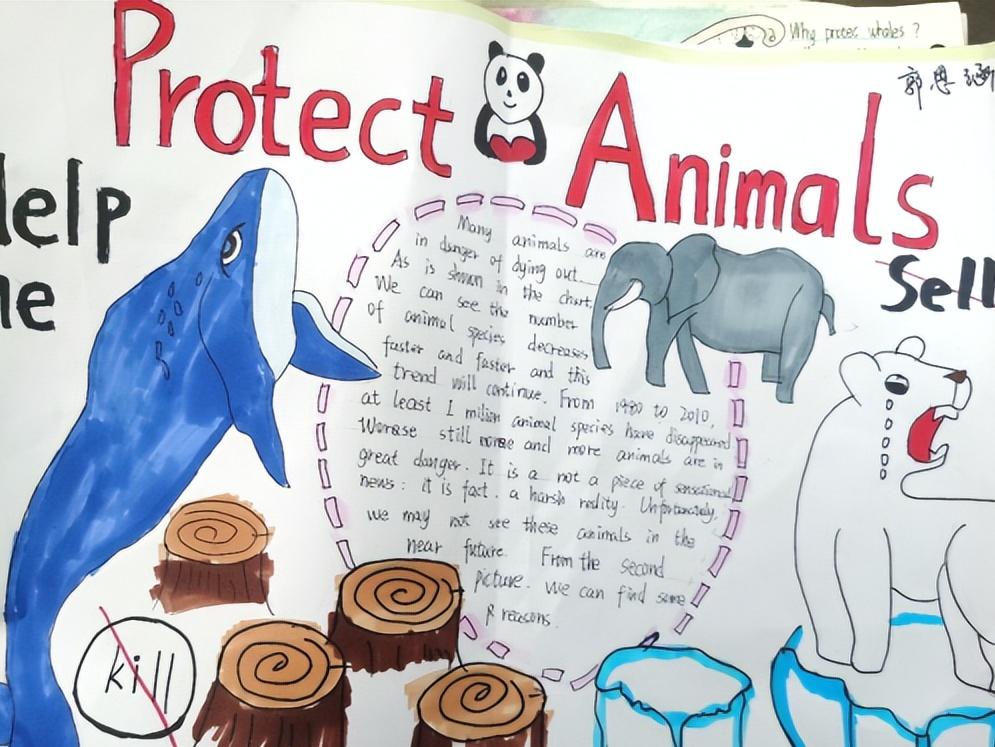 Why protec whales ?
郭思涵
Protect Animals
Help
me
Sell
Many animals are
in danger of dying out.
As is shown in the chart,
We can see the number
of animal species decreases
faster and faster and this
trend will continue. From 1980 to 2010,
at least 1 milion animal species have disappeared
Worase still more and more animals are in
great danger. It is a not a piece of sensational
news: it is fact. a harsh reality. Unfortunately,
we may not see these animals in the
near future. From the second
picture. we can find some
reasons.
kill